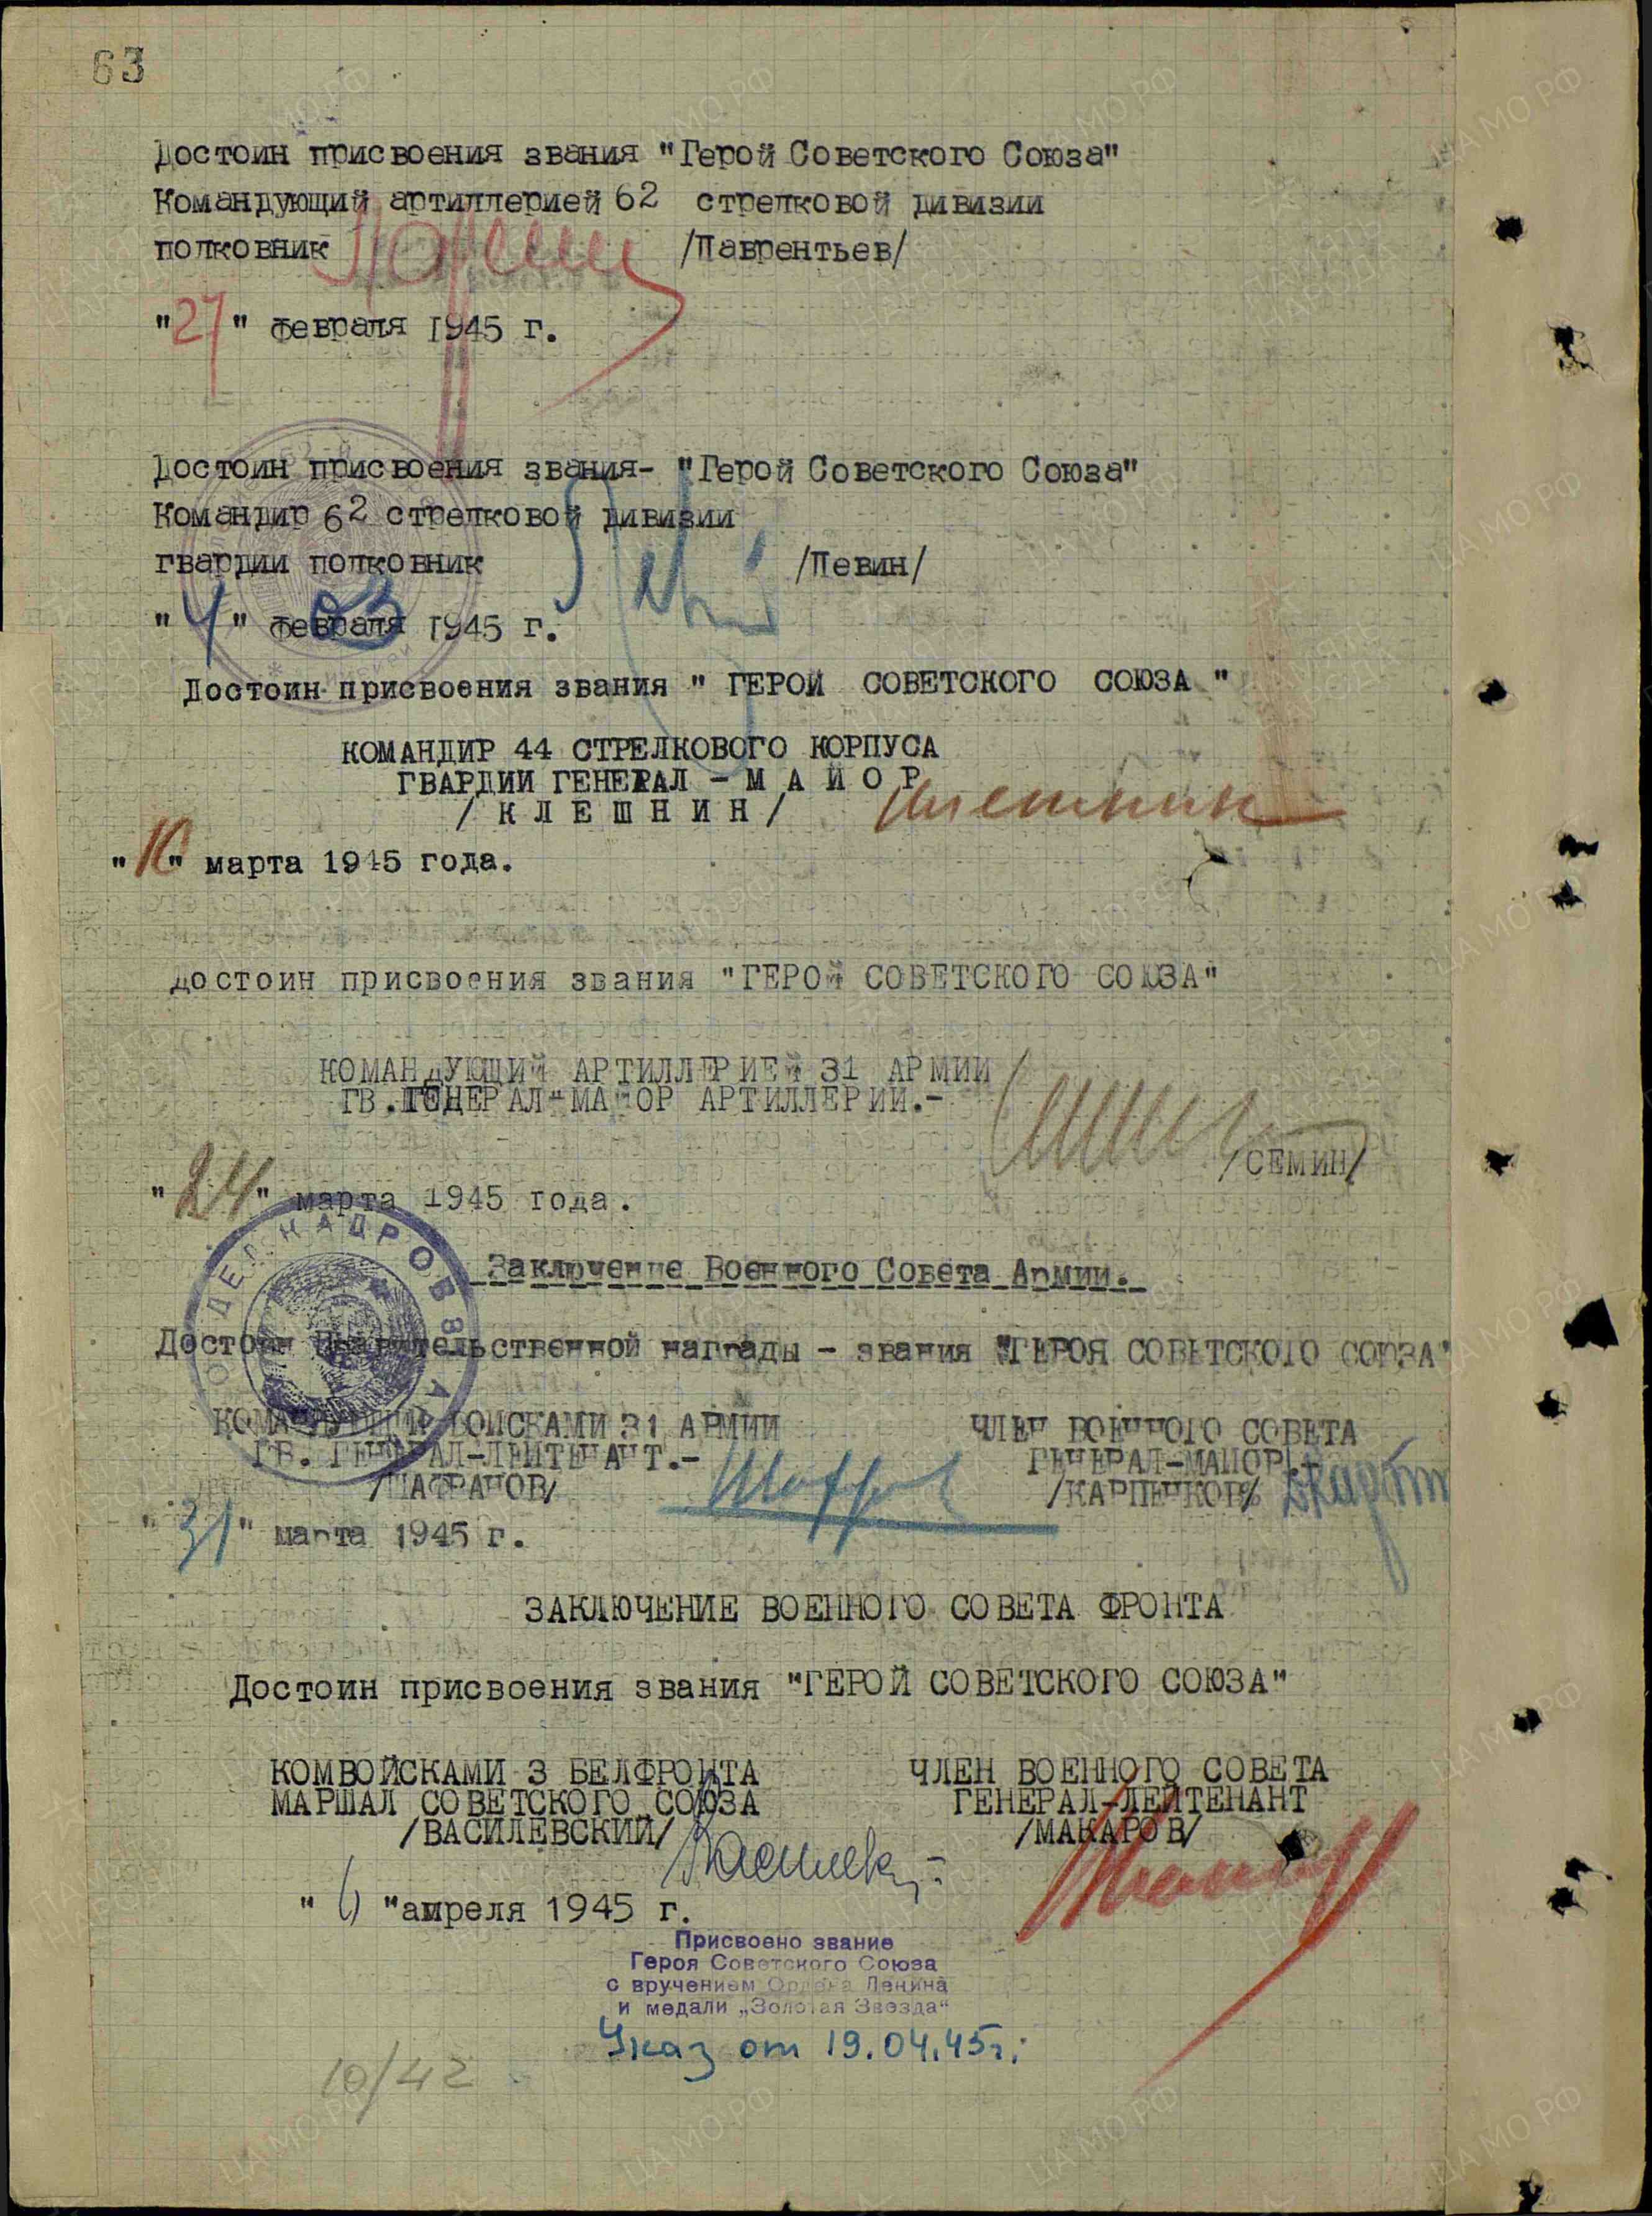 63
Достоин присвоения звания "Герой Советского Союза"
Командующий артиллерией 62 стрелковой дивизии
полковник /Лаврентьев/
"27" февраля 1945 г.
Достоин присвоения звания- "Герой Советского Союза"
Командир 62 стрелковой дивизии
гвардии полковник /Левин/
"4" февраля 03 1945 г.
Достоин присвоения звания " ГЕРОЙ СОВЕТСКОГО СОЮЗА "
КОМАНДИР 44 СТРЕЛКОВОГО КОРПУСА
ГВАРДИИ ГЕНЕРАЛ - М А Й О Р
/ К Л Е Ш Н И Н /
"10" марта 1945 года.
достоин присвоения звания "ГЕРОЙ СОВЕТСКОГО СОЮЗА"
КОМАНДУЮЩИЙ АРТИЛЛЕРИЕЙ 31 АРМИИ
ГВ.ГЕНЕРАЛ-МАЙОР АРТИЛЛЕРИИ.-
/СЕМИН/
"24" марта 1945 года.
ОТДЕЛ КАДРОВ
Заключение Военного Совета Армии.
Достоин Правительственной награды - звания "ГЕРОЯ СОВЕТСКОГО СОЮЗА"
КОМАНДУЮЩИЙ ВОЙСКАМИ 31 АРМИИ ЧЛЕН ВОЕННОГО СОВЕТА
ГВ. ГЕНЕРАЛ-ЛЕЙТЕНАНТ.- ГЕНЕРАЛ-МАЙОР
/ШАФРАНОВ/ /КАРПЕНКОВ/
"31" марта 1945 г.
ЗАКЛЮЧЕНИЕ ВОЕННОГО СОВЕТА ФРОНТА
Достоин присвоения звания "ГЕРОЙ СОВЕТСКОГО СОЮЗА"
КОМВОЙСКАМИ 3 БЕЛФРОНТА ЧЛЕН ВОЕННОГО СОВЕТА
МАРШАЛ СОВЕТСКОГО СОЮЗА ГЕНЕРАЛ-ЛЕЙТЕНАНТ
/ВАСИЛЕВСКИЙ/ /МАКАРОВ/
"6" апреля 1945 г.
Присвоено звание
Героя Советского Союза
с вручением Ордена Ленина
и медали „Золотая Звезда"
Указ от 19.04.45г.
10/42